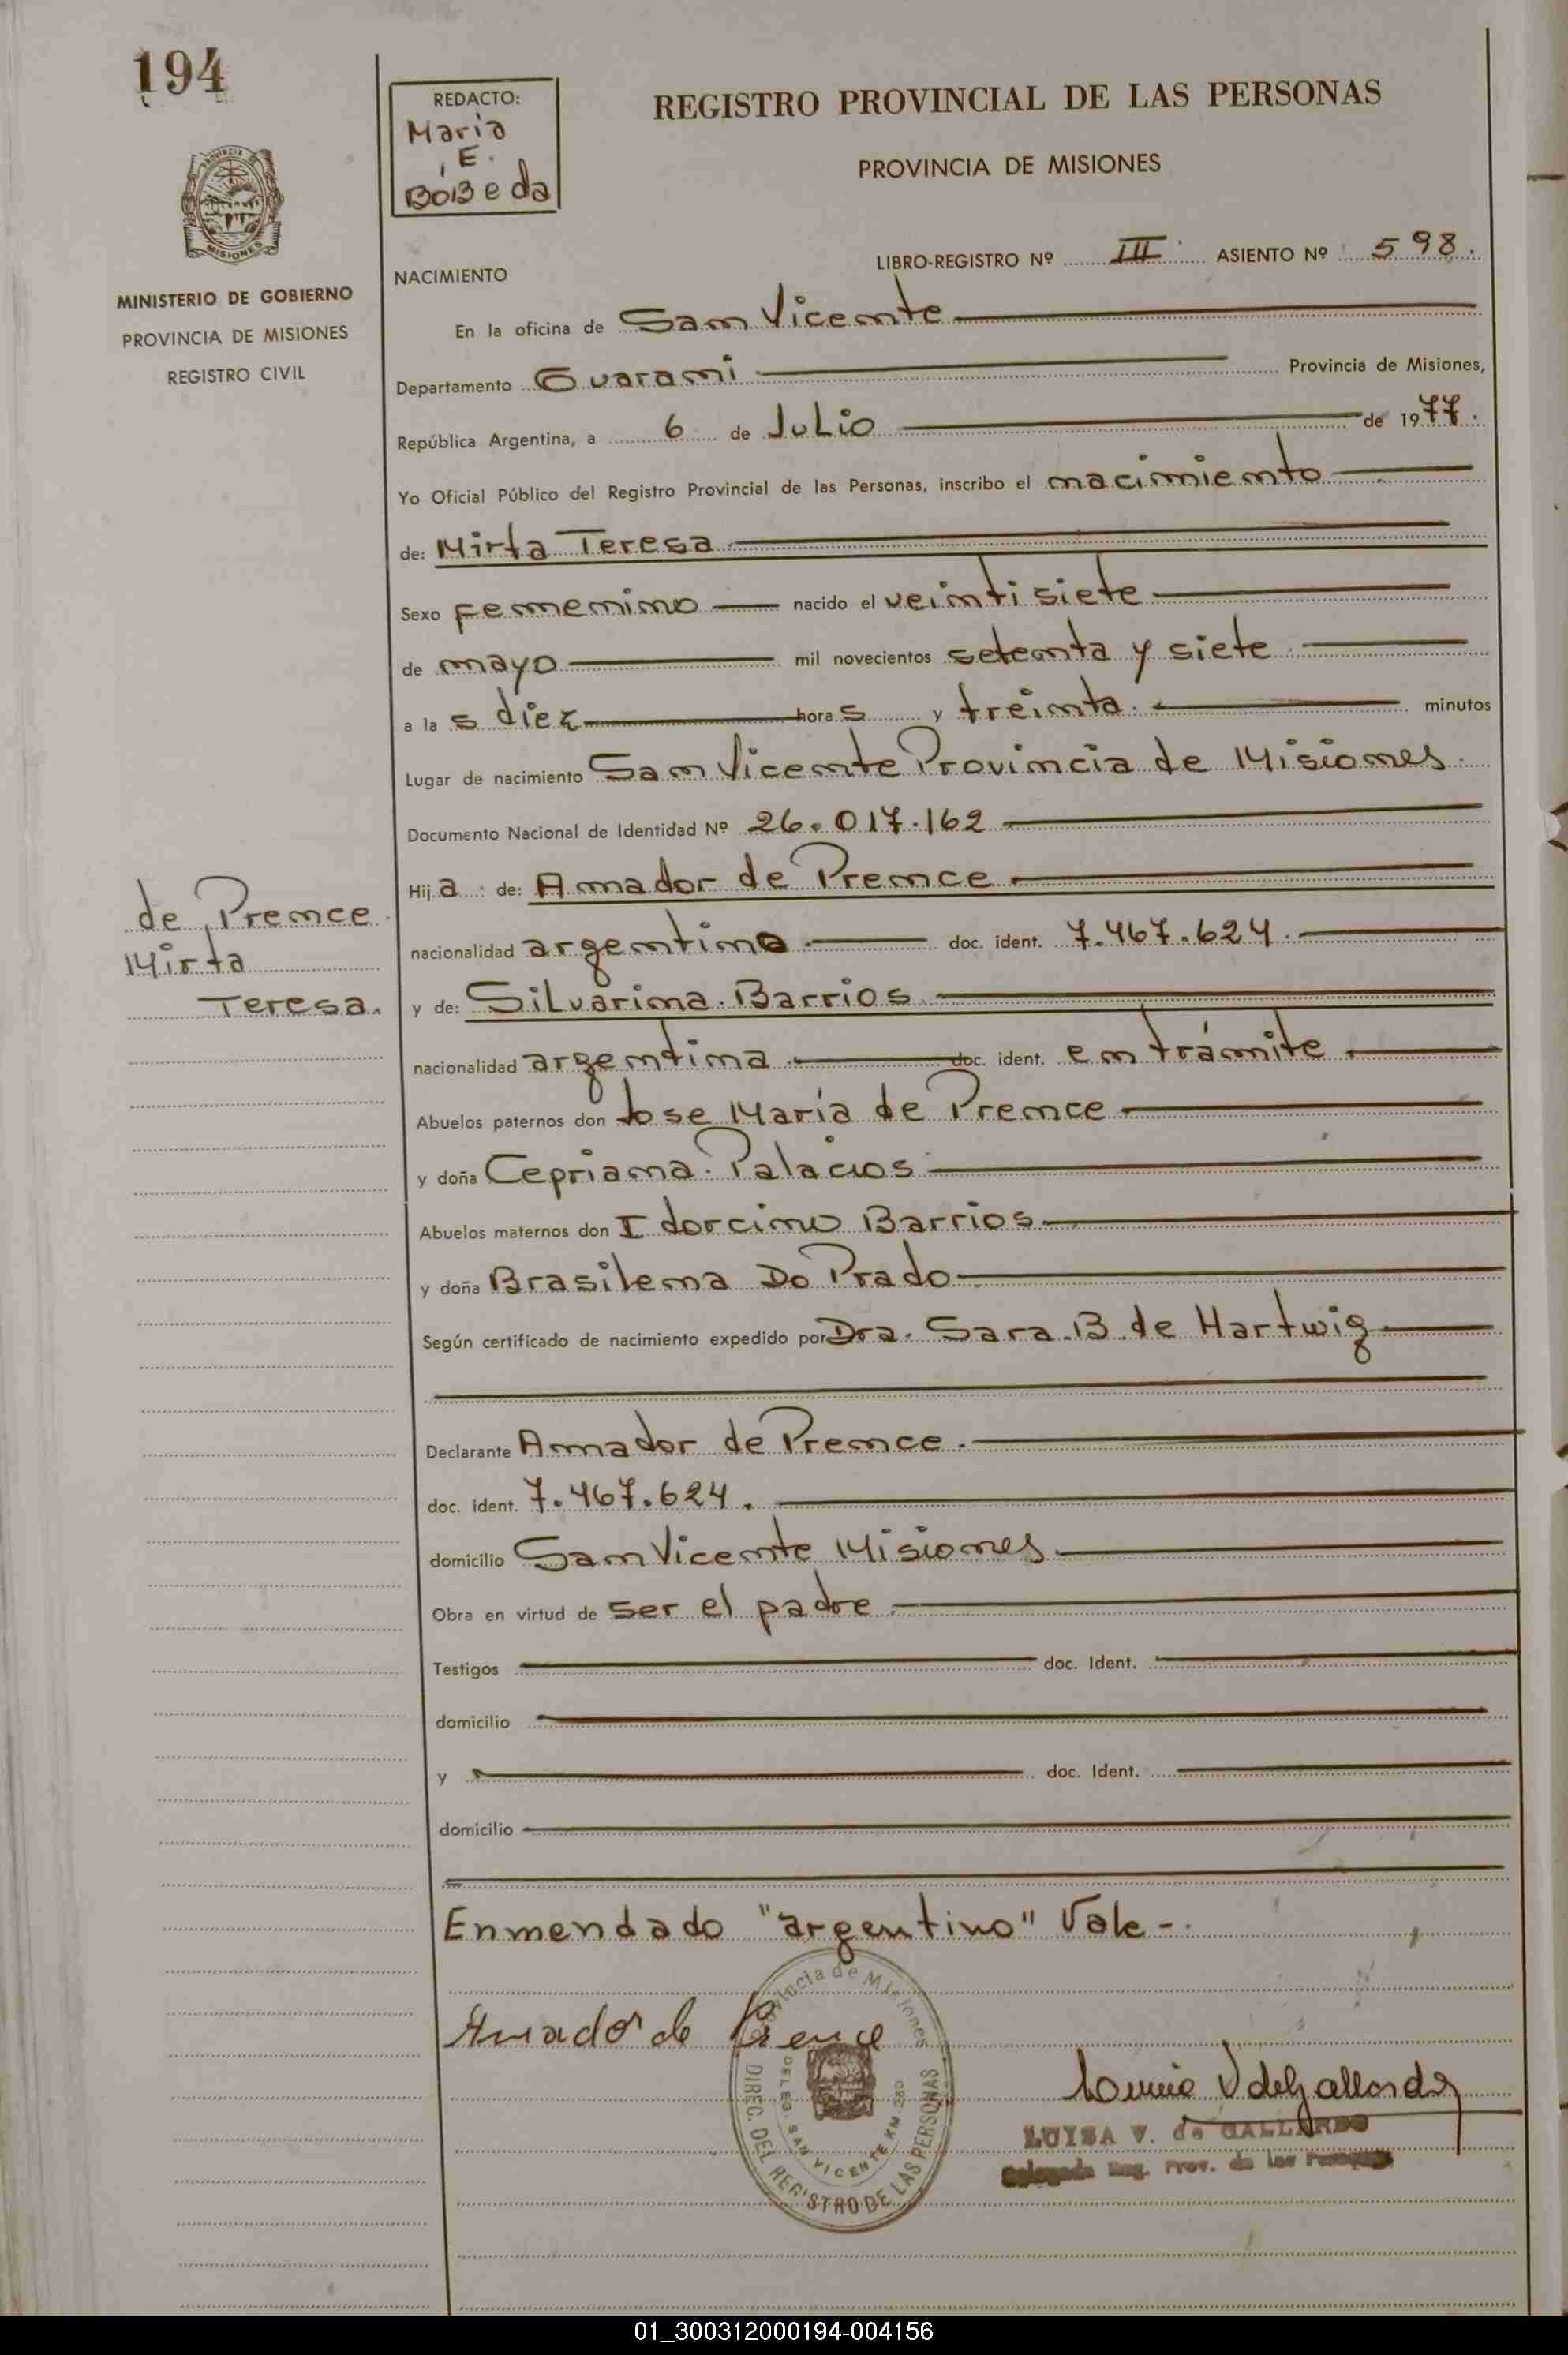 194
REDACTO:
Maria
E.
BOBeda
REGISTRO PROVINCIAL DE LAS PERSONAS
PROVINCIA DE MISIONES
MISIONES
MINISTERIO DE GOBIERNO
PROVINCIA DE MISIONES
REGISTRO CIVIL
NACIMIENTO
LIBRO-REGISTRO Nº III ASIENTO Nº 598.
En la oficina de San Vicente
Departamento Guarani Provincia de Misiones,
República Argentina, a 6 de Julio de 1977.
Yo Oficial Público del Registro Provincial de las Personas, inscribo el nacimiento
de: Mirta Teresa
Sexo femenino nacido el veintisiete
de mayo mil novecientos setenta y siete
a la s diez hora s y treinta minutos
Lugar de nacimiento San Vicente Provincia de Misiones.
Documento Nacional de Identidad Nº 26.017.162
Hij a de: Amador de Prence
nacionalidad argentino doc. ident. 7.467.624.
y de: Silvarina Barrios
nacionalidad argentina doc. ident. en trámite
Abuelos paternos don Jose María de Prence
y doña Cepriana Palacios
Abuelos maternos don Idorcino Barrios
y doña Brasilena Do Prado
Según certificado de nacimiento expedido por Dra. Sara B. de Hartwig
Declarante Amador de Prence.
doc. ident. 7.467.624.
domicilio San Vicente Misiones
Obra en virtud de ser el padre
Testigos doc. Ident.
domicilio
y doc. Ident.
domicilio
Enmendado "argentino" Vale-.
de Prence
Mirta
Teresa.
Amador de Prence
Provincia de Misiones
DELEG. SAN VICENTE KM 280
DIREC. DEL REGISTRO DE LAS PERSONAS
LUISA V. de GALLARDO
Delegada Reg. Prov. de las Personas
01_300312000194-004156